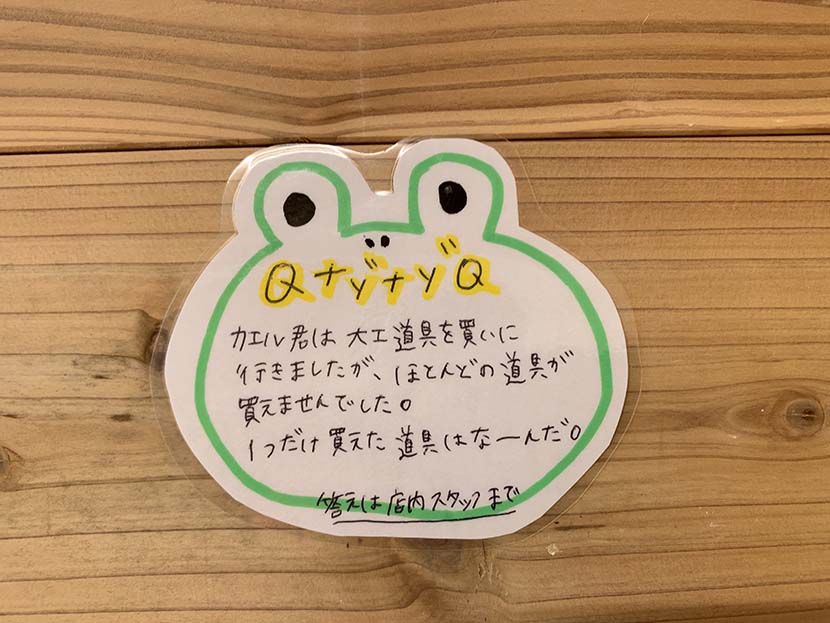 Qナゾナゾ Q
カエル君は 大工道具を買いに
行きましたが、ほとんどの道具が
買えませんでした。
1つだけ買えた道具はな〜んだ。
答えは店内スタッフまで